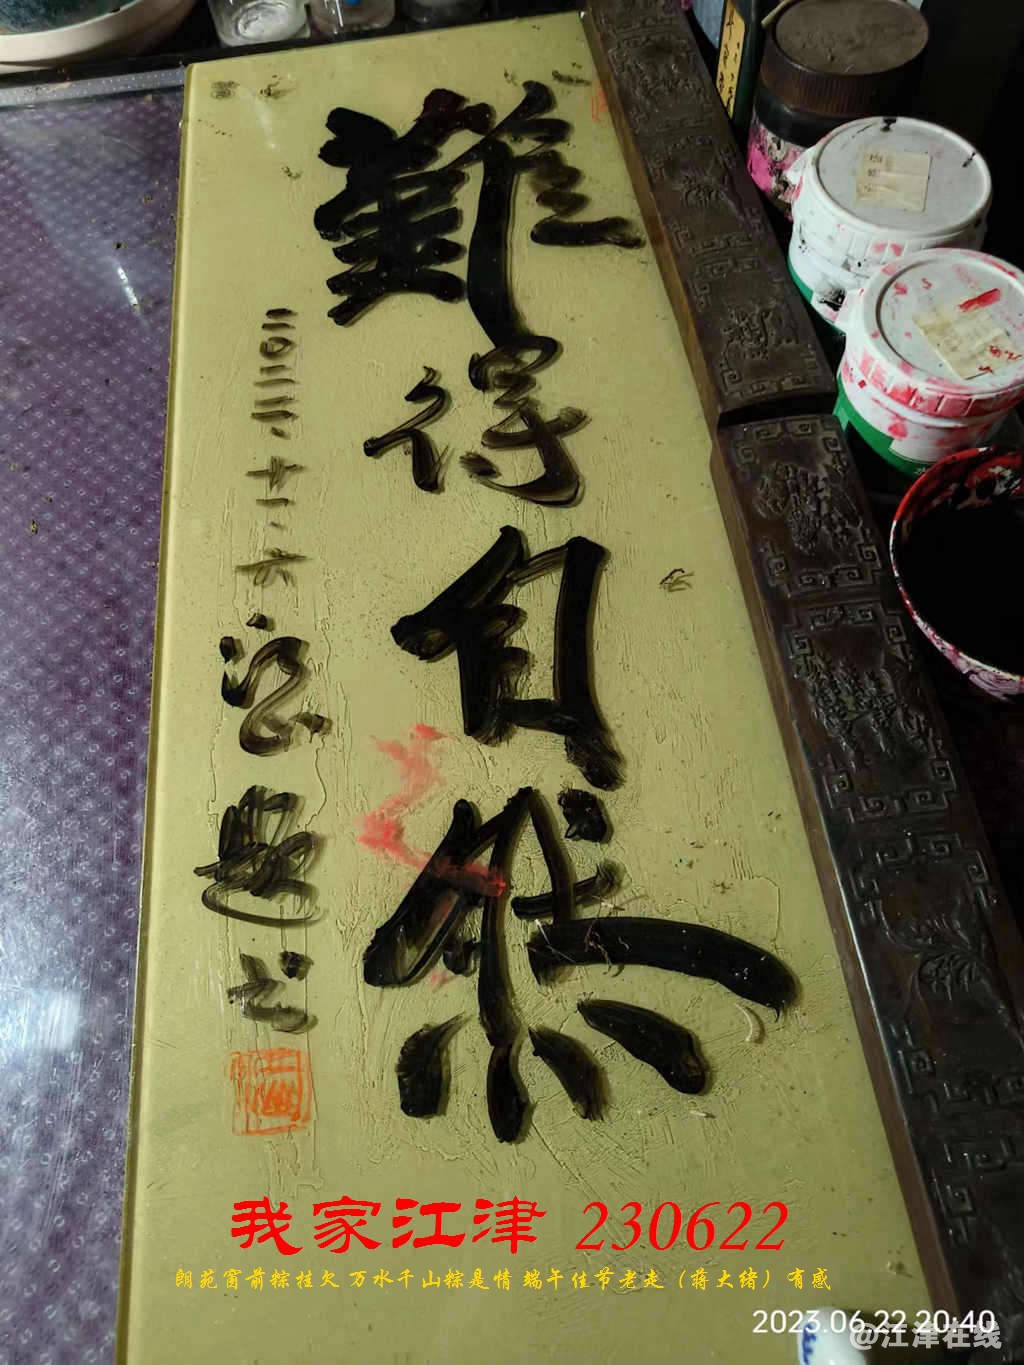 難得自然
二〇二二、十一、六
題
我家江津 230622
朗苑窗前粽挂欠 万水千山粽是情 端午佳节老走（蒋大绪）有感
2023.06.22 20:40
@江津在线